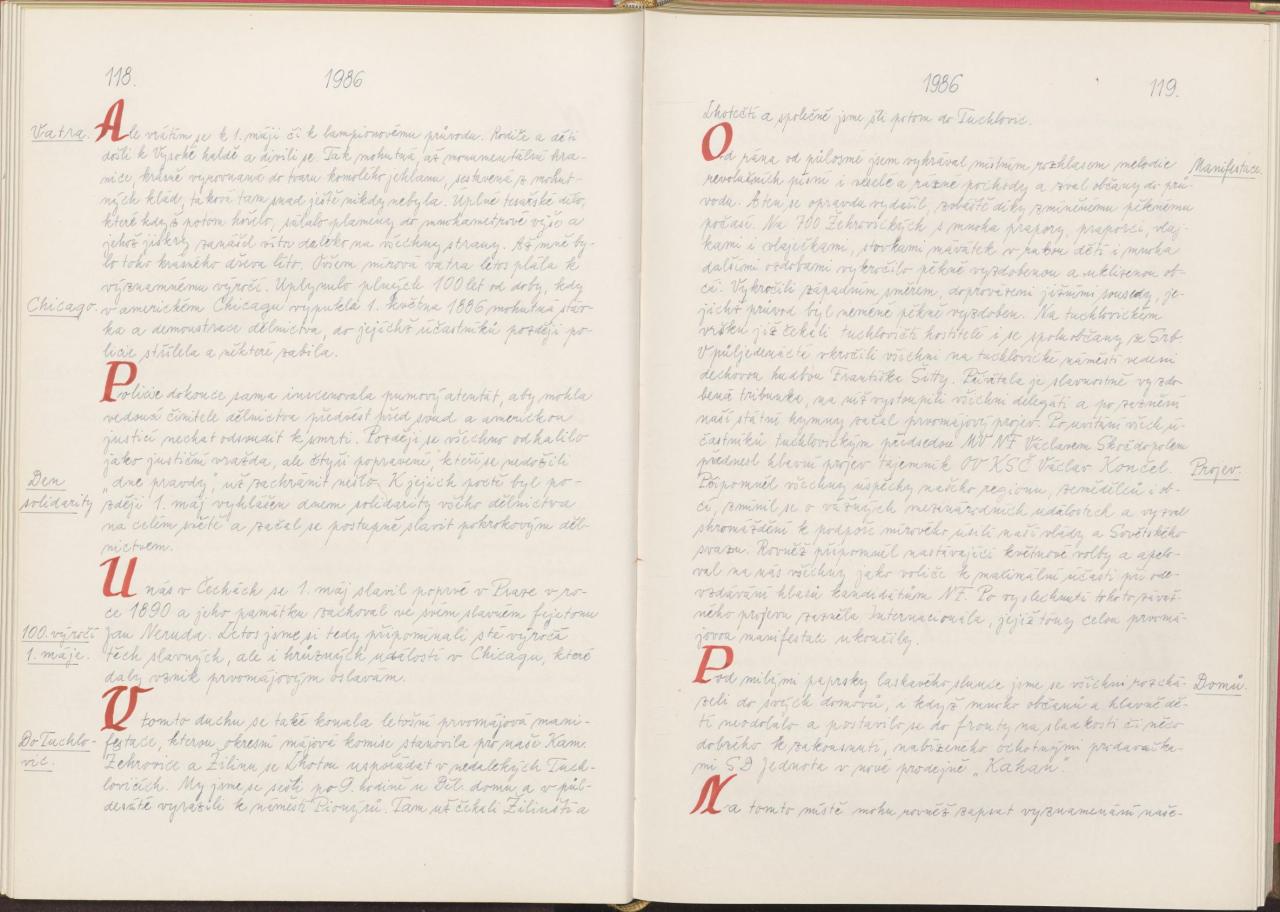 118.
1986
Vatra.
Ale vrátím se k 1. máji či k lampionovému průvodu. Rodiče a děti
došli k Vysoké haldě a divili se. Tak mohutná, až monumentální hra-
nice, krásně vyrovnaná do tvaru komolého jehlanu, sestavená z mohut-
ných klád, taková tam snad ještě nikdy nebyla. Úplné tesařské dílo,
které když potom hořelo, sálalo plameny do mnohametrové výše a
jehož jiskry zanášel vítr daleko na všechny strany. Až mně by-
lo toho krásného dřeva líto. Ovšem mírová vatra letos plála k
významnému výročí. Uplynulo plných 100 let od doby, kdy
Chicago.
v americkém Chicagu vypukla 1. května 1886 mohutná stáv-
ka a demonstrace dělnictva, do jejichž účastníků později po-
licie střílela a některé zabila.
Policie dokonce sama inscenovala pumový atentát, aby mohla
vedoucí činitele dělnictva předvést před soud a americkou
justicí nechat odsoudit k smrti. Později se všechno odhalilo
jako justiční vražda, ale čtyři popravení, kteří se nedožili
Den
solidarity
„dne pravdy", už zachránit nešlo. K jejich poctě byl po-
zději 1. máj vyhlášen dnem solidarity všeho dělnictva
na celém světě a začal se postupně slavit pokrokovým děl-
nictvem.
U nás v Čechách se 1. máj slavil poprvé v Praze v ro-
ce 1890 a jeho památku zachoval ve svém slavném fejetonu
100. výročí
1. máje.
Jan Neruda. Letos jsme si tedy připomínali sté výročí
těch slavných, ale i hrůzných událostí v Chicagu, které
daly vznik prvomájovým oslavám.
V tomto duchu se také konala letošní prvomájová mani-
Do Tuchlo-
vic.
festace, kterou okresní májová komise stanovila pro naše Kam.
Žehrovice a Žilinu se Lhotou uspořádat v nedalekých Tuch-
lovicích. My jsme se sešli po 9. hodině u Děl. domu a v půl-
desáté vyrazili k náměstí Pionýrů. Tam už čekali Žilinští a
1986
119.
Lhotečtí a společně jsme šli potom do Tuchlovic.
Manifestace.
Od rána od půlosmé jsem vyhrával místním rozhlasem melodie
revolučních písní i veselé a rázné pochody a zval občany do prů-
vodu. A ten se opravdu vydařil, zvláště díky zmíněnému pěknému
počasí. Na 700 Žehrovických s mnoha prapory, praporci, vlaj-
kami i vlaječkami, stovkami mávátek v rukou dětí i mnoha
dalšími ozdobami vykročilo pěkně vyzdobenou a uklizenou ob-
cí. Vykročili západním směrem, doprovázeni jižními sousedy, je-
jichž průvod byl neméně pěkně vyzdoben. Na tuchlovickém
vršku již čekali tuchlovičtí hostitelé i se spoluobčany ze Srb.
V půljedenácté vkročili všichni na tuchlovické náměstí vedeni
dechovou hudbou Františka Šitty. Přivítala je slavnostně vyzdo-
bená tribunka, na niž vystoupili všichni delegáti a po zaznění
naší státní hymny začal prvomájový projev. Po uvítání všech ú-
častníků tuchlovickým předsedou MV NF Václavem Skočdopolem
Projev.
přednesl hlavní projev tajemník OV KSČ Václav Končel.
Připomněl všechny úspěchy našeho regionu, zemědělců i ob-
cí, zmínil se o vážných mezinárodních událostech a vyzval
shromáždění k podpoře mírového úsilí naší vlády a Sovětského
svazu. Rovněž připomněl nastávající květnové volby a apelo-
val na nás všechny jako voliče k maximální účasti při ode-
vzdávání hlasů kandidátům NF. Po vyslechnutí tohoto závaž-
ného projevu zazněla Internacionála, jejíž tóny celou prvomá-
jovou manifestaci ukončily.
Domů.
Pod milými paprsky laskavého slunce jsme se všichni rozchá-
zeli do svých domovů, i když mnoho občanů a hlavně dě-
tí neodolalo a postavilo se do fronty na sladkosti či něco
dobrého k zakousnutí, nabízeného ochotnými prodavačka-
mi SD Jednota v nové prodejně „Kahan".
Na tomto místě mohu rovněž zapsat vyznamenání naše-